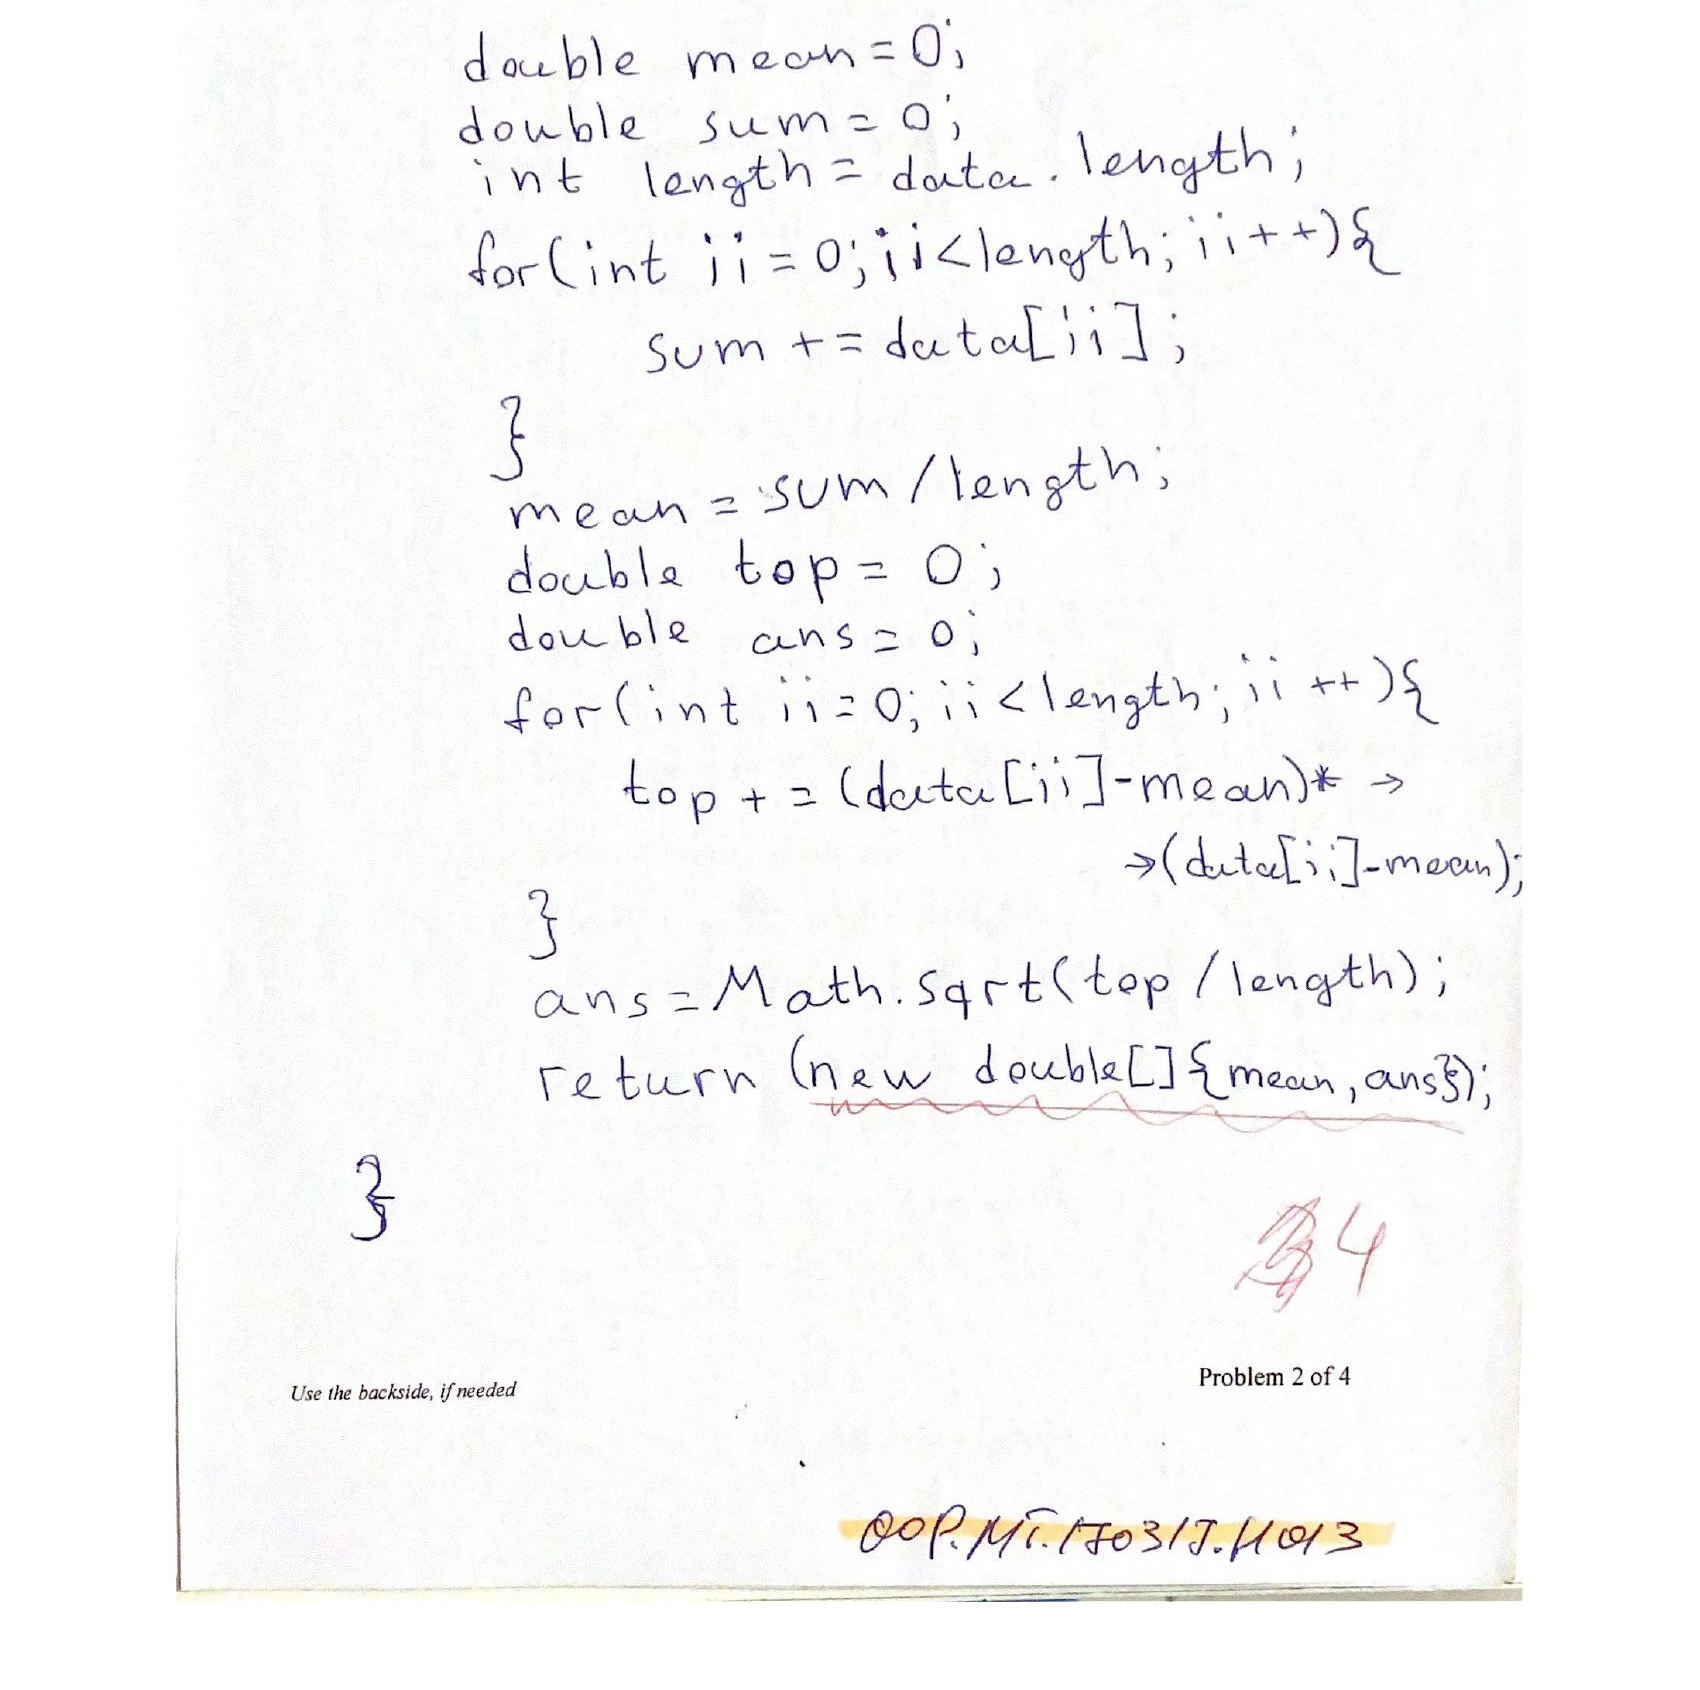 double mean=0;
double sum=0;
int length=data.length;
for(int ii=0;ii<length;ii++){
sum +=data[ii];
}
mean=sum/length;
double top=0;
double ans=0;
for(int ii=0;ii<length;ii++){
top +=(data[ii]-mean)*→
→(data[ii]-mean);
}
ans=Math.sqrt(top/length);
return (new double[]{mean,ans});
}
4
Problem 2 of 4
Use the backside, if needed